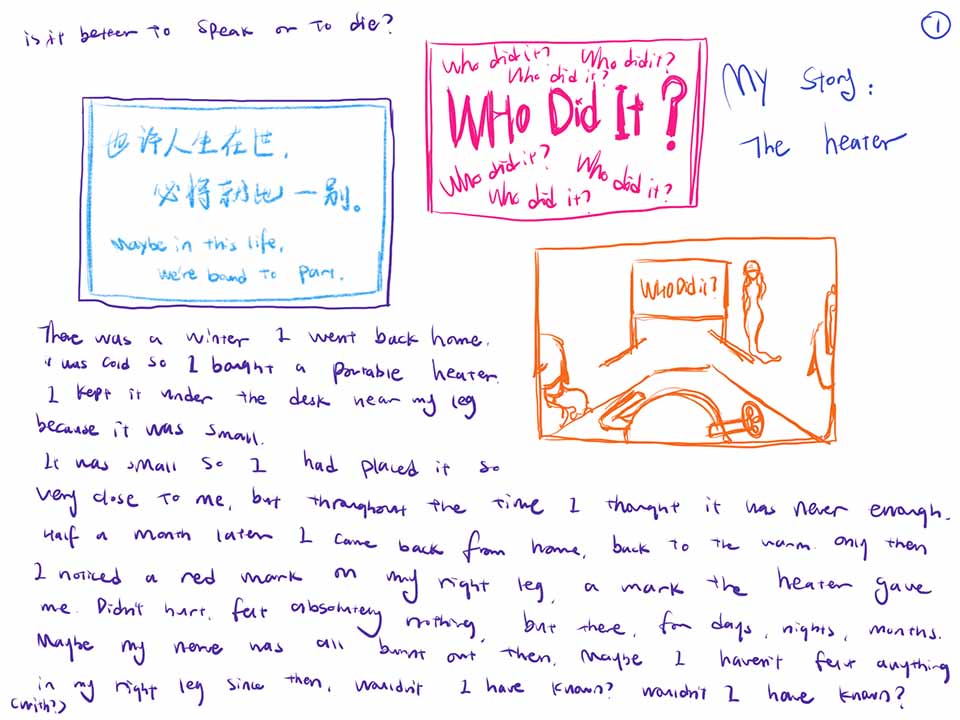 is it better to speak or to die?
1
who did it? Who did it?
Who did it?
WHO DID IT?
Who did it? Who did it?
Who did it?
My Story:
The heater
也许人生在世,
必将就此一别。
Maybe in this life,
we're bound to part.
Who Did it?
There was a winter I went back home.
it was cold so I bought a portable heater.
I kept it under the desk near my leg
because it was small.
It was small so I had placed it so
very close to me, but throughout the time I thought it was never enough.
Half a month later I came back from home, back to the warm. only then
I noticed a red mark on my right leg, a mark the heater gave
me. Didn't hurt, felt absolutely nothing, but there, for days, nights, months.
Maybe my nerve was all burnt out then, Maybe I haven't felt anything
in my right leg since then, wouldn't I have known? wouldn't I have known?
(with?)